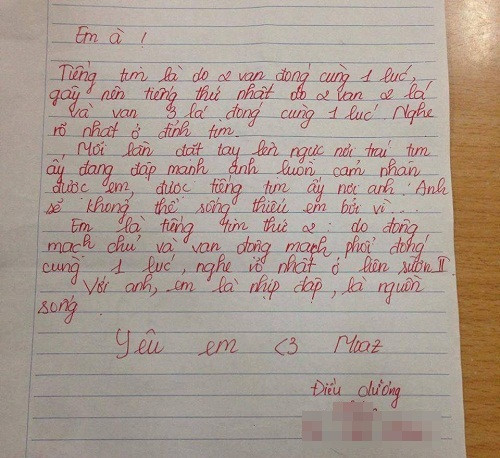 Em à !
Tiếng tim là do 2 van đóng cùng 1 lúc,
gây nên tiếng thứ nhất do 2 van 2 lá
và van 3 lá đóng cùng 1 lúc. Nghe
rõ nhất ở đỉnh tim.
Mỗi lần đặt tay lên ngực nơi trái tim
ấy đang đập mạnh anh luôn cảm nhận
được em, được tiếng tim ấy nơi anh. Anh
sẽ không thể sống thiếu em bởi vì..
Em là tiếng tim thứ 2 : do động
mạch chủ và van động mạch phổi đóng
cùng 1 lúc, nghe rõ nhất ở liên sườn II.
Với anh, em là nhịp đập, là nguồn
sống.
Yêu em <3 Moaz
Điều dưỡng